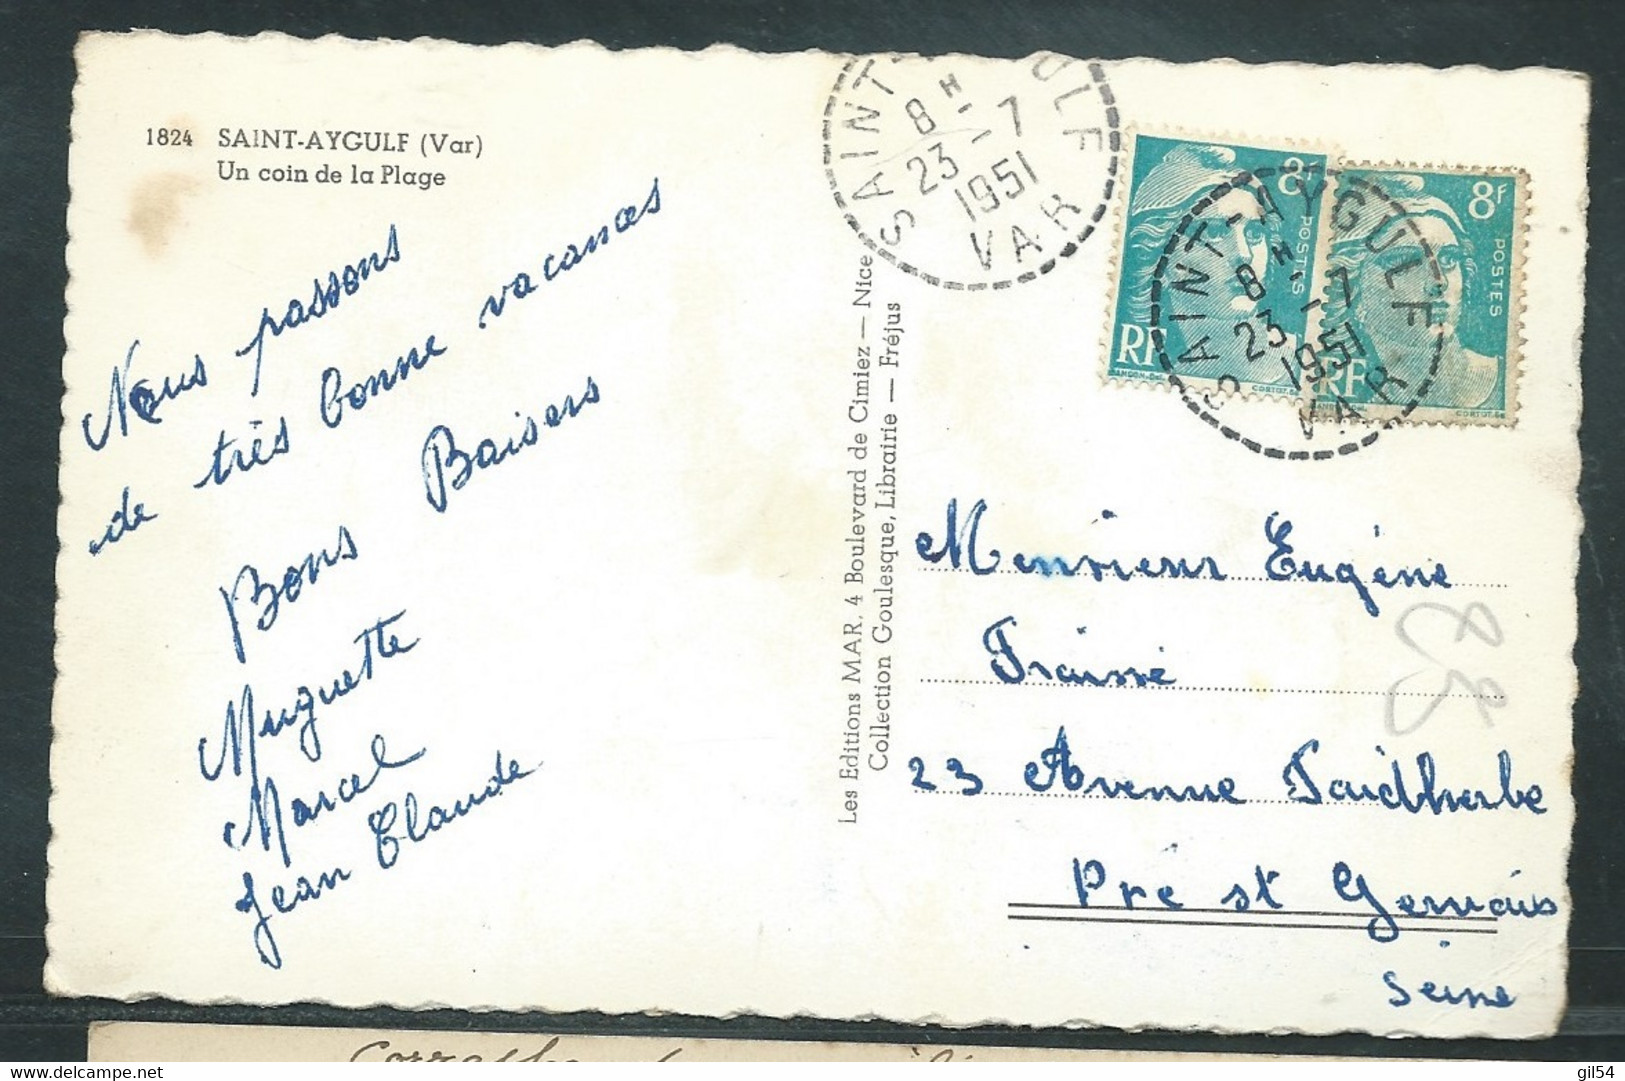 1824 SAINT-AYGULF (Var)
Un coin de la Plage
Nous passons
de très bonne vacances
Bons Baisers
Muguette
Marcel
Jean Claude
Les Editions MAR, 4 Boulevard de Cimiez — Nice
Collection Goulesque, Librairie — Fréjus
SAINT- ULF
8 H
23 - 7
1951
VAR
8F
POSTES
RF
SAINT-AYGULF
8 H
23 - 7
1951
VAR
8F
POSTES
RF
Monsieur Eugène
Fraissé
23 Avenue Faidherbe
Pré st Gervais
Seine
delcampe.net
gil54